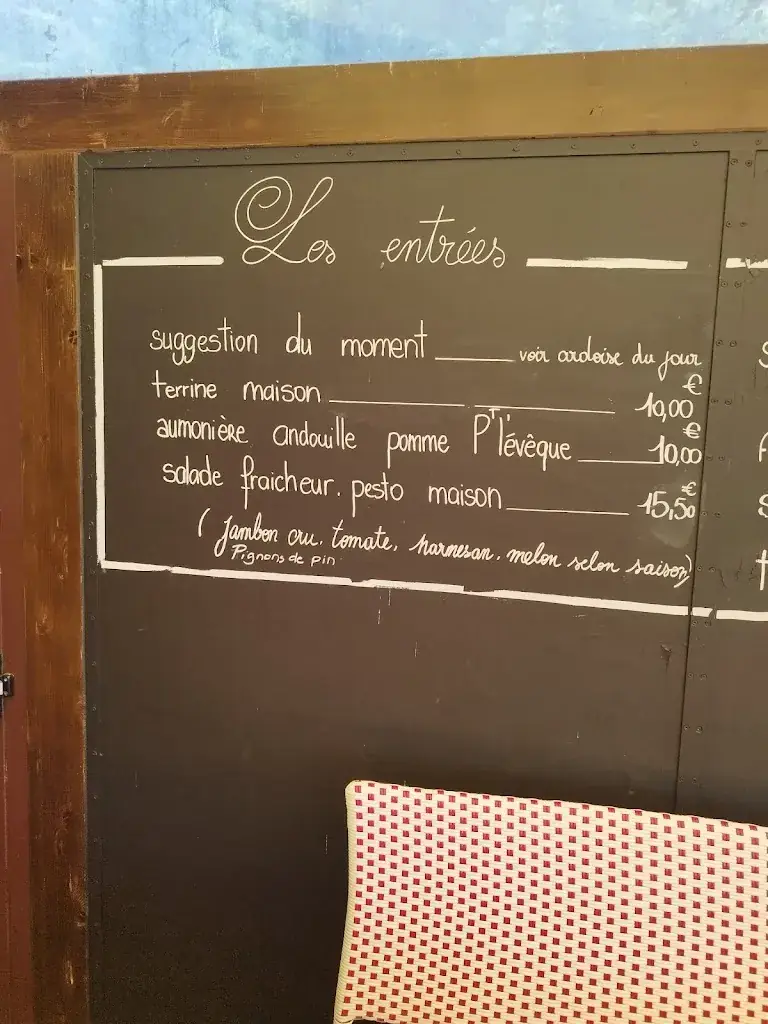 Les entrées
suggestion du moment voir ardoise du jour
terrine maison 10,00 €
aumonière andouille pomme P't l'évêque 10,00 €
salade fraicheur. pesto maison 15,50 €
( jambon cru. tomate. parmesan. melon selon saison)
Pignons de pin